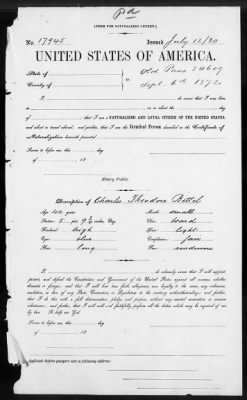 Pd
[FORM FOR NATURALIZED CITIZEN.]
No. 17945 Issued July 12/80
UNITED STATES OF AMERICA.
State of Old Pass
County of Sept. 6th 1872
I, do swear that I was born
in on or about the
day of
, that I am a NATURALIZED AND LOYAL CITIZEN OF THE UNITED STATES,
and about to travel abroad, and further, that I am the Identical Person described in the Certificate of
Naturalization herewith presented.
Sworn to before me, this day
of 18
Notary Public.
Description of Charles Theodore Bettel
Age: years Mouth: small
Stature: 5 feet 9 inches, Eng. Chin: broad
Forehead: high Hair: light
Eyes: blue Complexion: fair
Nose: long Face: medium
I, do solemnly swear that I will support,
protect, and defend the Constitution and Government of the United States against all enemies, whether
domestic or foreign; and that I will bear true faith, allegiance, and loyalty to the same, any ordinance,
resolution or law of any State, Convention, or Legislature to the contrary notwithstanding; and further,
that I do this with a full determination, pledge, and purpose, without any mental reservation or evasion
whatsoever; and further, that I will well and faithfully perform all the duties which may be required of me
by law. So help me God.
Sworn to before me, this day
of 18
Applicant desires passport sent to following address: